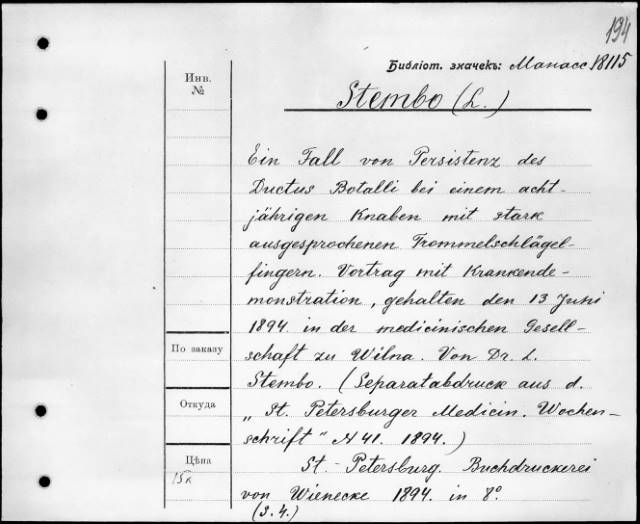 194
Библіот. значекъ: Манасс 18115
Инв.
№
Stembo (L.)
Ein Fall von Persistenz des
Ductus Botalli bei einem acht-
jährigen Knaben mit stark
ausgesprochenen Trommelschlägel-
fingern. Vortrag mit Krankende-
monstration, gehalten den 13 Juni
1894. in der medicinischen Gesell-
schaft zu Wilna. Von Dr. L.
Stembo. (Separatabdruck aus d.
„St. Petersburger Medicin. Wochen-
schrift" № 41. 1894.)
St.-Petersburg. Buchdruckerei
von Wienecke 1894. in 8°.
(S. 4.)
По заказу
Откуда
Цѣна
15к